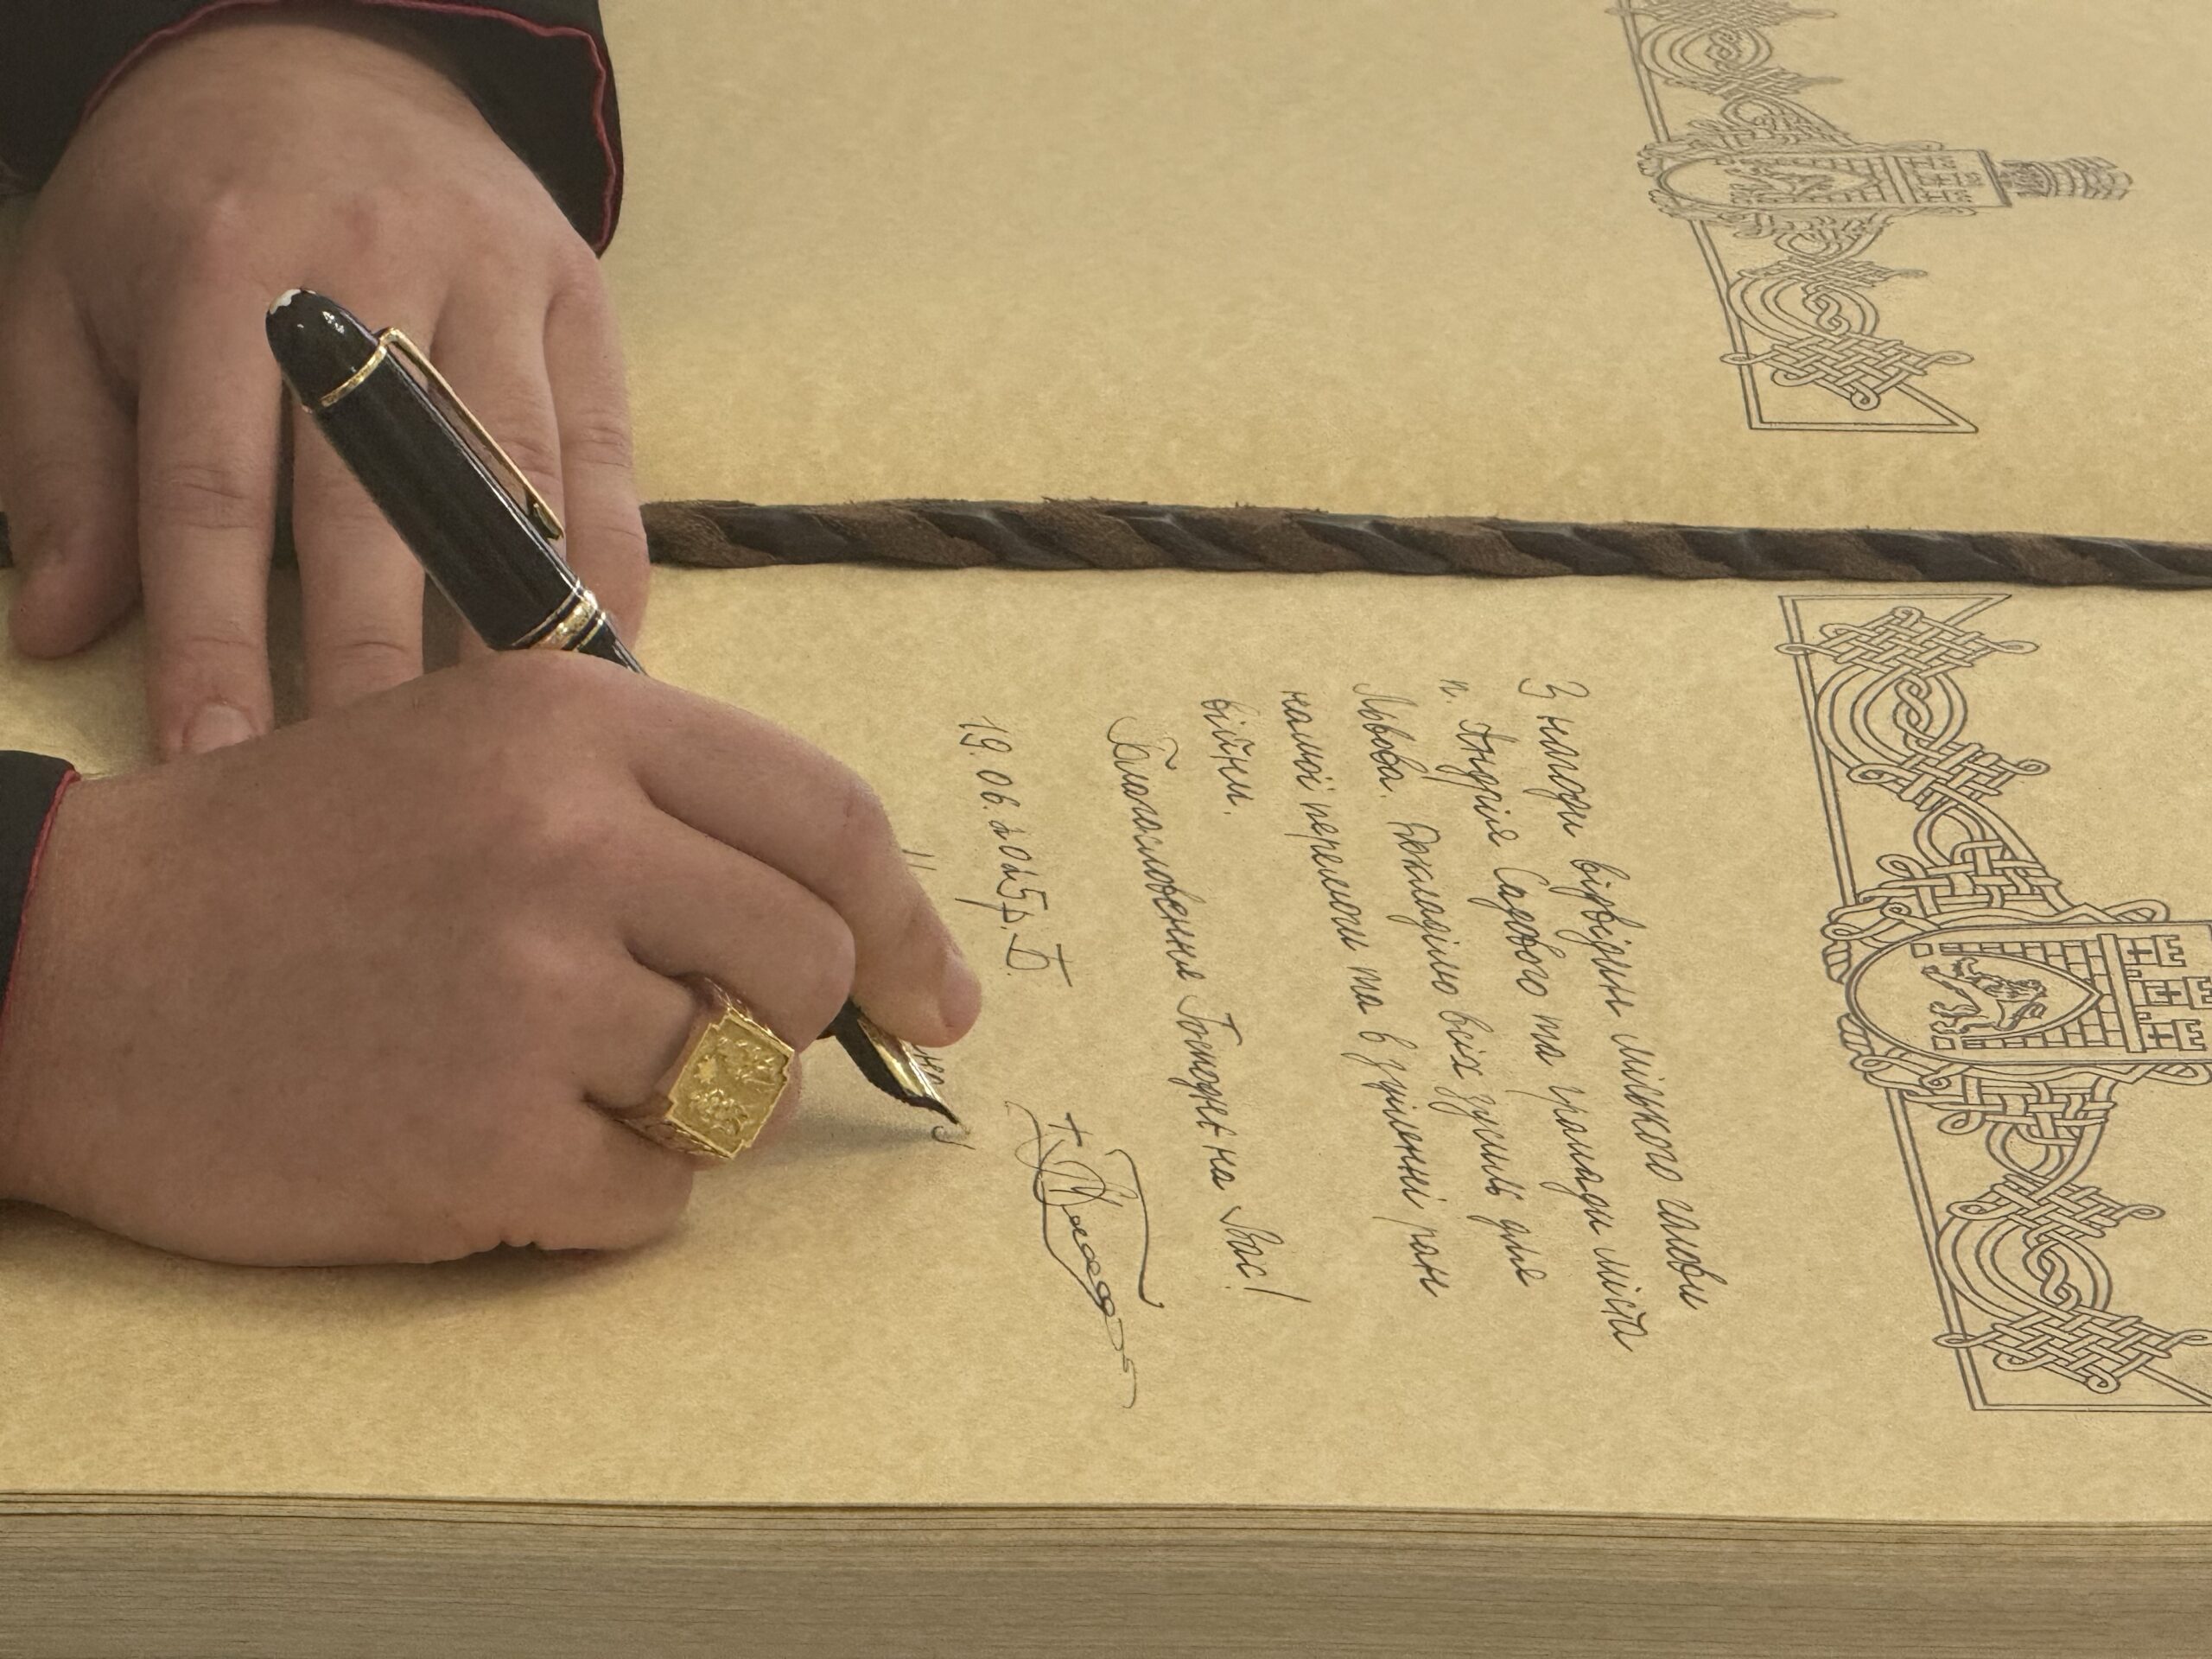 З нагоди відвідин міського голови
п. Андрія Садового та громади міста
Львова. Докладімо всіх зусиль для
нашої перемоги та в зціленні ран
війни.
Благословення Господнє на Вас!
19.06.2025р.Б.